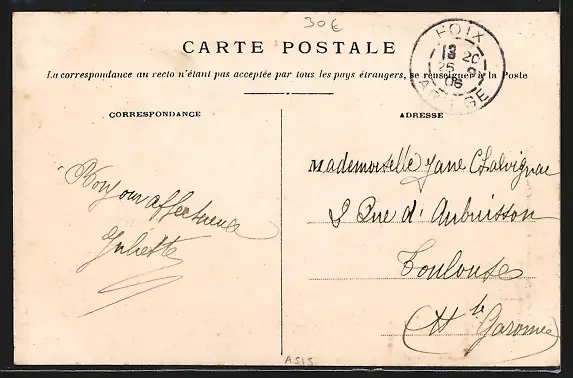 30€
CARTE POSTALE
La correspondance au recto n'étant pas acceptée par tous les pays étrangers, se renseigner à la Poste
FOIX
13 20
25 9
06
ARIEGE
CORRESPONDANCE
ADRESSE
Bonjour affectueux
Juliette
Mademoiselle Jane Chalvignac
8 Rue d'Aubuisson
Toulouse
(Hte Garonne)
A515